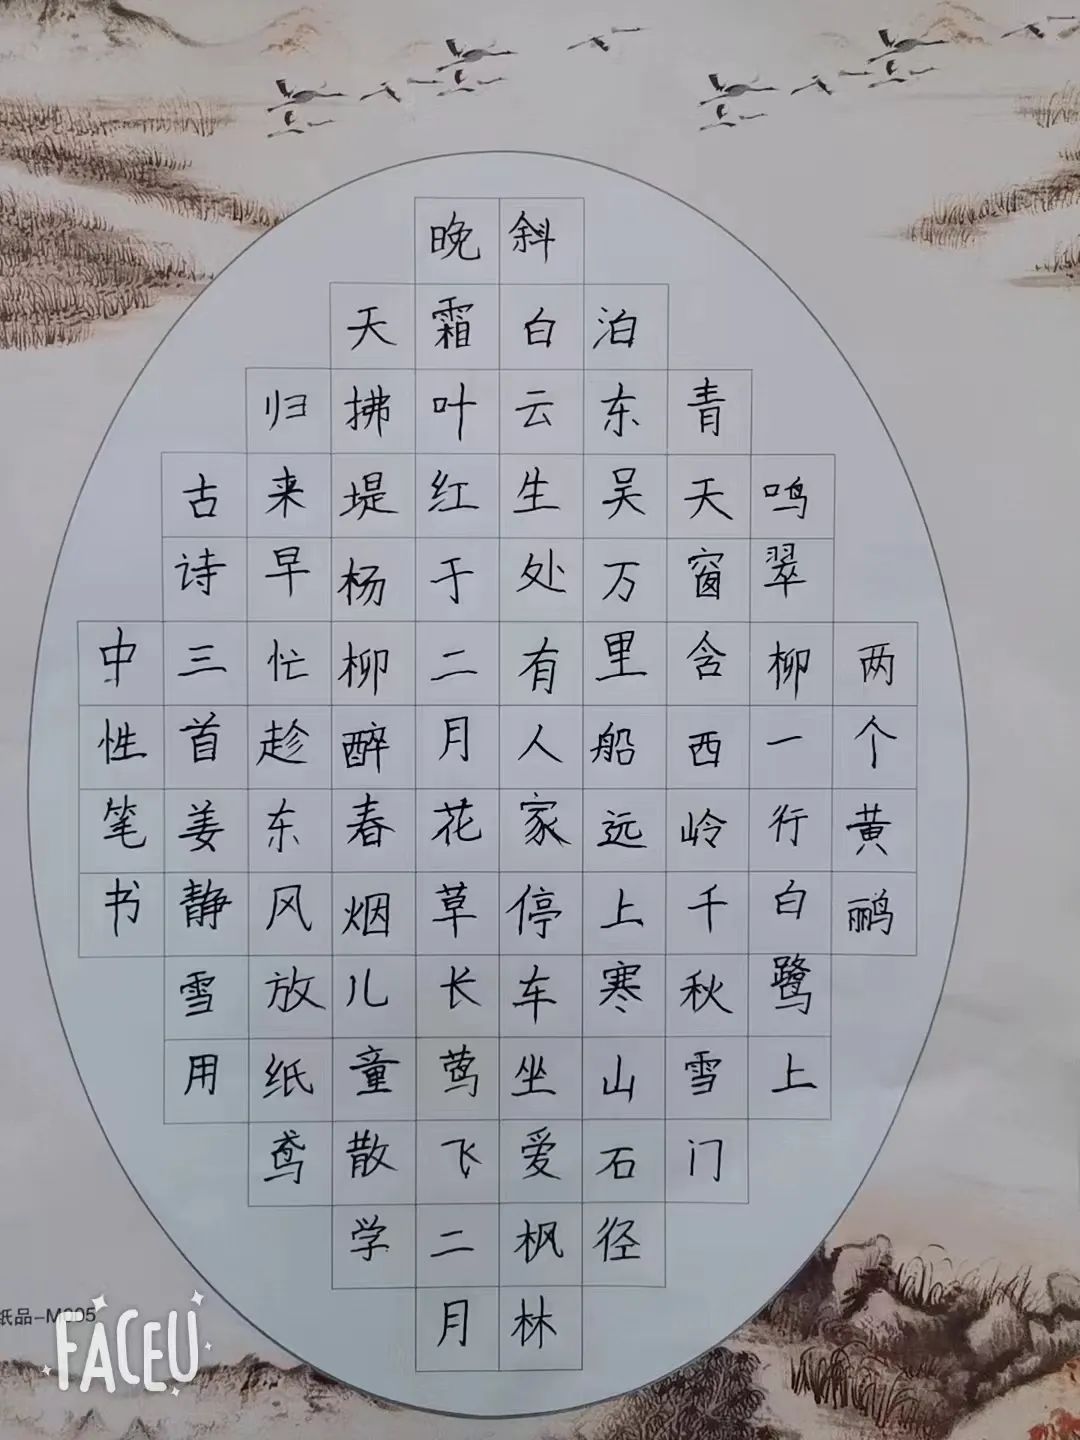 两个黄鹂
鸣翠柳一行白鹭上
青天窗含西岭千秋雪门
泊东吴万里船远上寒山石径
斜白云生处有人家停车坐爱枫林
晚霜叶红于二月花草长莺飞二月
天拂堤杨柳醉春烟儿童散学
归来早忙趁东风放纸鸢
古诗三首姜静雪用
中性笔书
纸品-M005
FACEU